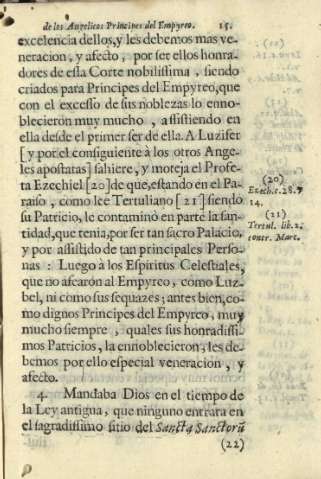 de los Angelicos Principes del Empyreo. 15.
excelencia dellos, y les debemos mas ve-
neracion, y afecto, por ser ellos honra-
dores de esta Corte nobilissima, siendo
criados para Principes del Empyreo, que
con el excesso de sus noblezas lo enno-
blecieron muy mucho, assistiendo en
ella desde el primer ser de ella. A Luzifer
[y por el consiguiente à los otros Ange-
les apostatas] sahiere, y moteja el Profe-
ta Ezechiel [20] de que, estando en el Pa-
raiso, como lee Tertuliano [21] siendo
su Patricio, le contaminò en parte la san-
tidad, que tenia, por ser tan sacro Palacio,
y por assistido de tan principales Perso-
nas: Luego à los Espiritus Celestiales,
que no afearon al Empyreo, como Luz-
bel, ni como sus sequazes; antes bien, co-
mo dignos Principes del Empyreo, muy
mucho siempre, quales sus honradissi-
mos Patricios, la ennoblecieron, les de-
bemos por ello especial veneracion, y
afecto.
4. Mandaba Dios en el tiempo de
la Ley antigua, que ninguno entrara en
el sagradissimo sitio del Sancta Sanctorũ
(22)
(20)
Ezech. c. 28. ℣
14.
(21)
Tertul. lib. 2.
contr. Marc.